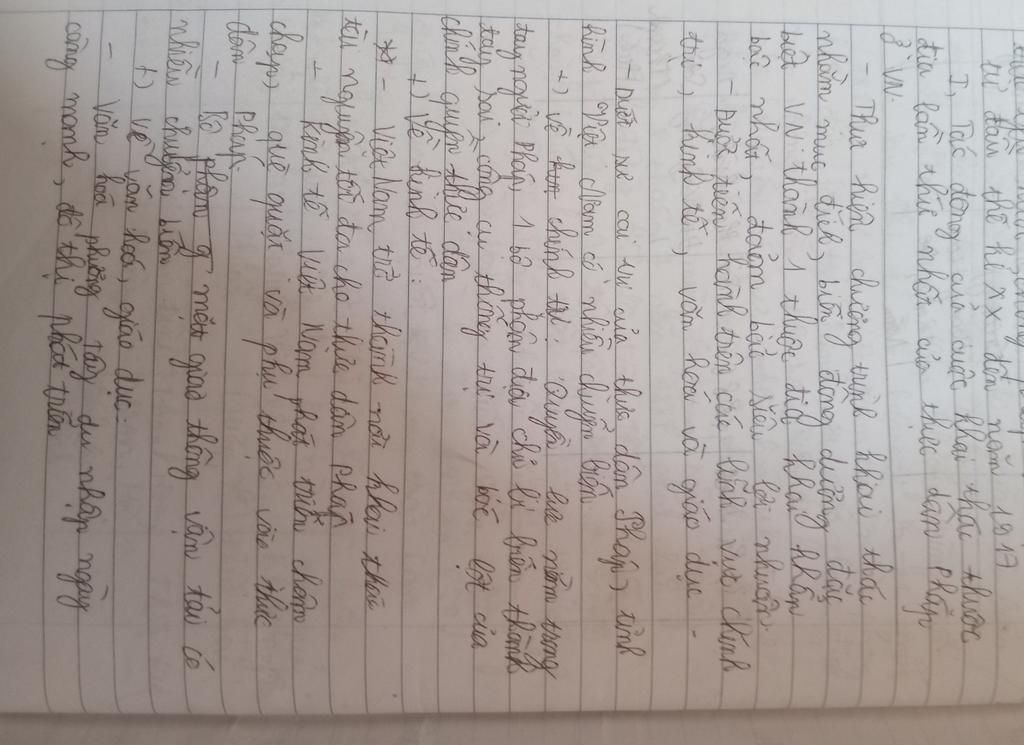 từ đầu thế kỉ XX đến năm 1917
I, Tác động của cuộc khai thác thuộc
địa lần thứ nhất của thực dân Pháp
ở VN.
- Thực hiện chương trình khai thác
nhằm mục đích, biến đông dương đặc
biệt VN thành 1 thuộc địa khai thác
bậc nhất, đảm bảo siêu lợi nhuận.
- Được tiến hành trên các lĩnh vực chính
trị, kinh tế, văn hoá và giáo dục.
- Dưới sự cai trị của thực dân Pháp, tình
hình Việt Nam có nhiều chuyển biến
+) Về chính trị: Quyền lực nằm trong
tay người Pháp, 1 bộ phận địa chủ bị biến thành
tay sai, công cụ thống trị và bóc lột của
chính quyền thực dân
+) Về kinh tế:
- Việt Nam trở thành nơi khai thác
tài nguyên tối đa cho thực dân Pháp
+ Kinh tế Việt Nam phát triển chậm
chạp, què quặt và phụ thuộc vào thực
dân Pháp.
- Bộ phận giao thông vận tải có
nhiều chuyển biến
+) Về văn hoá, giáo dục:
- Văn hoá phương tây du nhập ngày
càng mạnh, đô thị phát triển